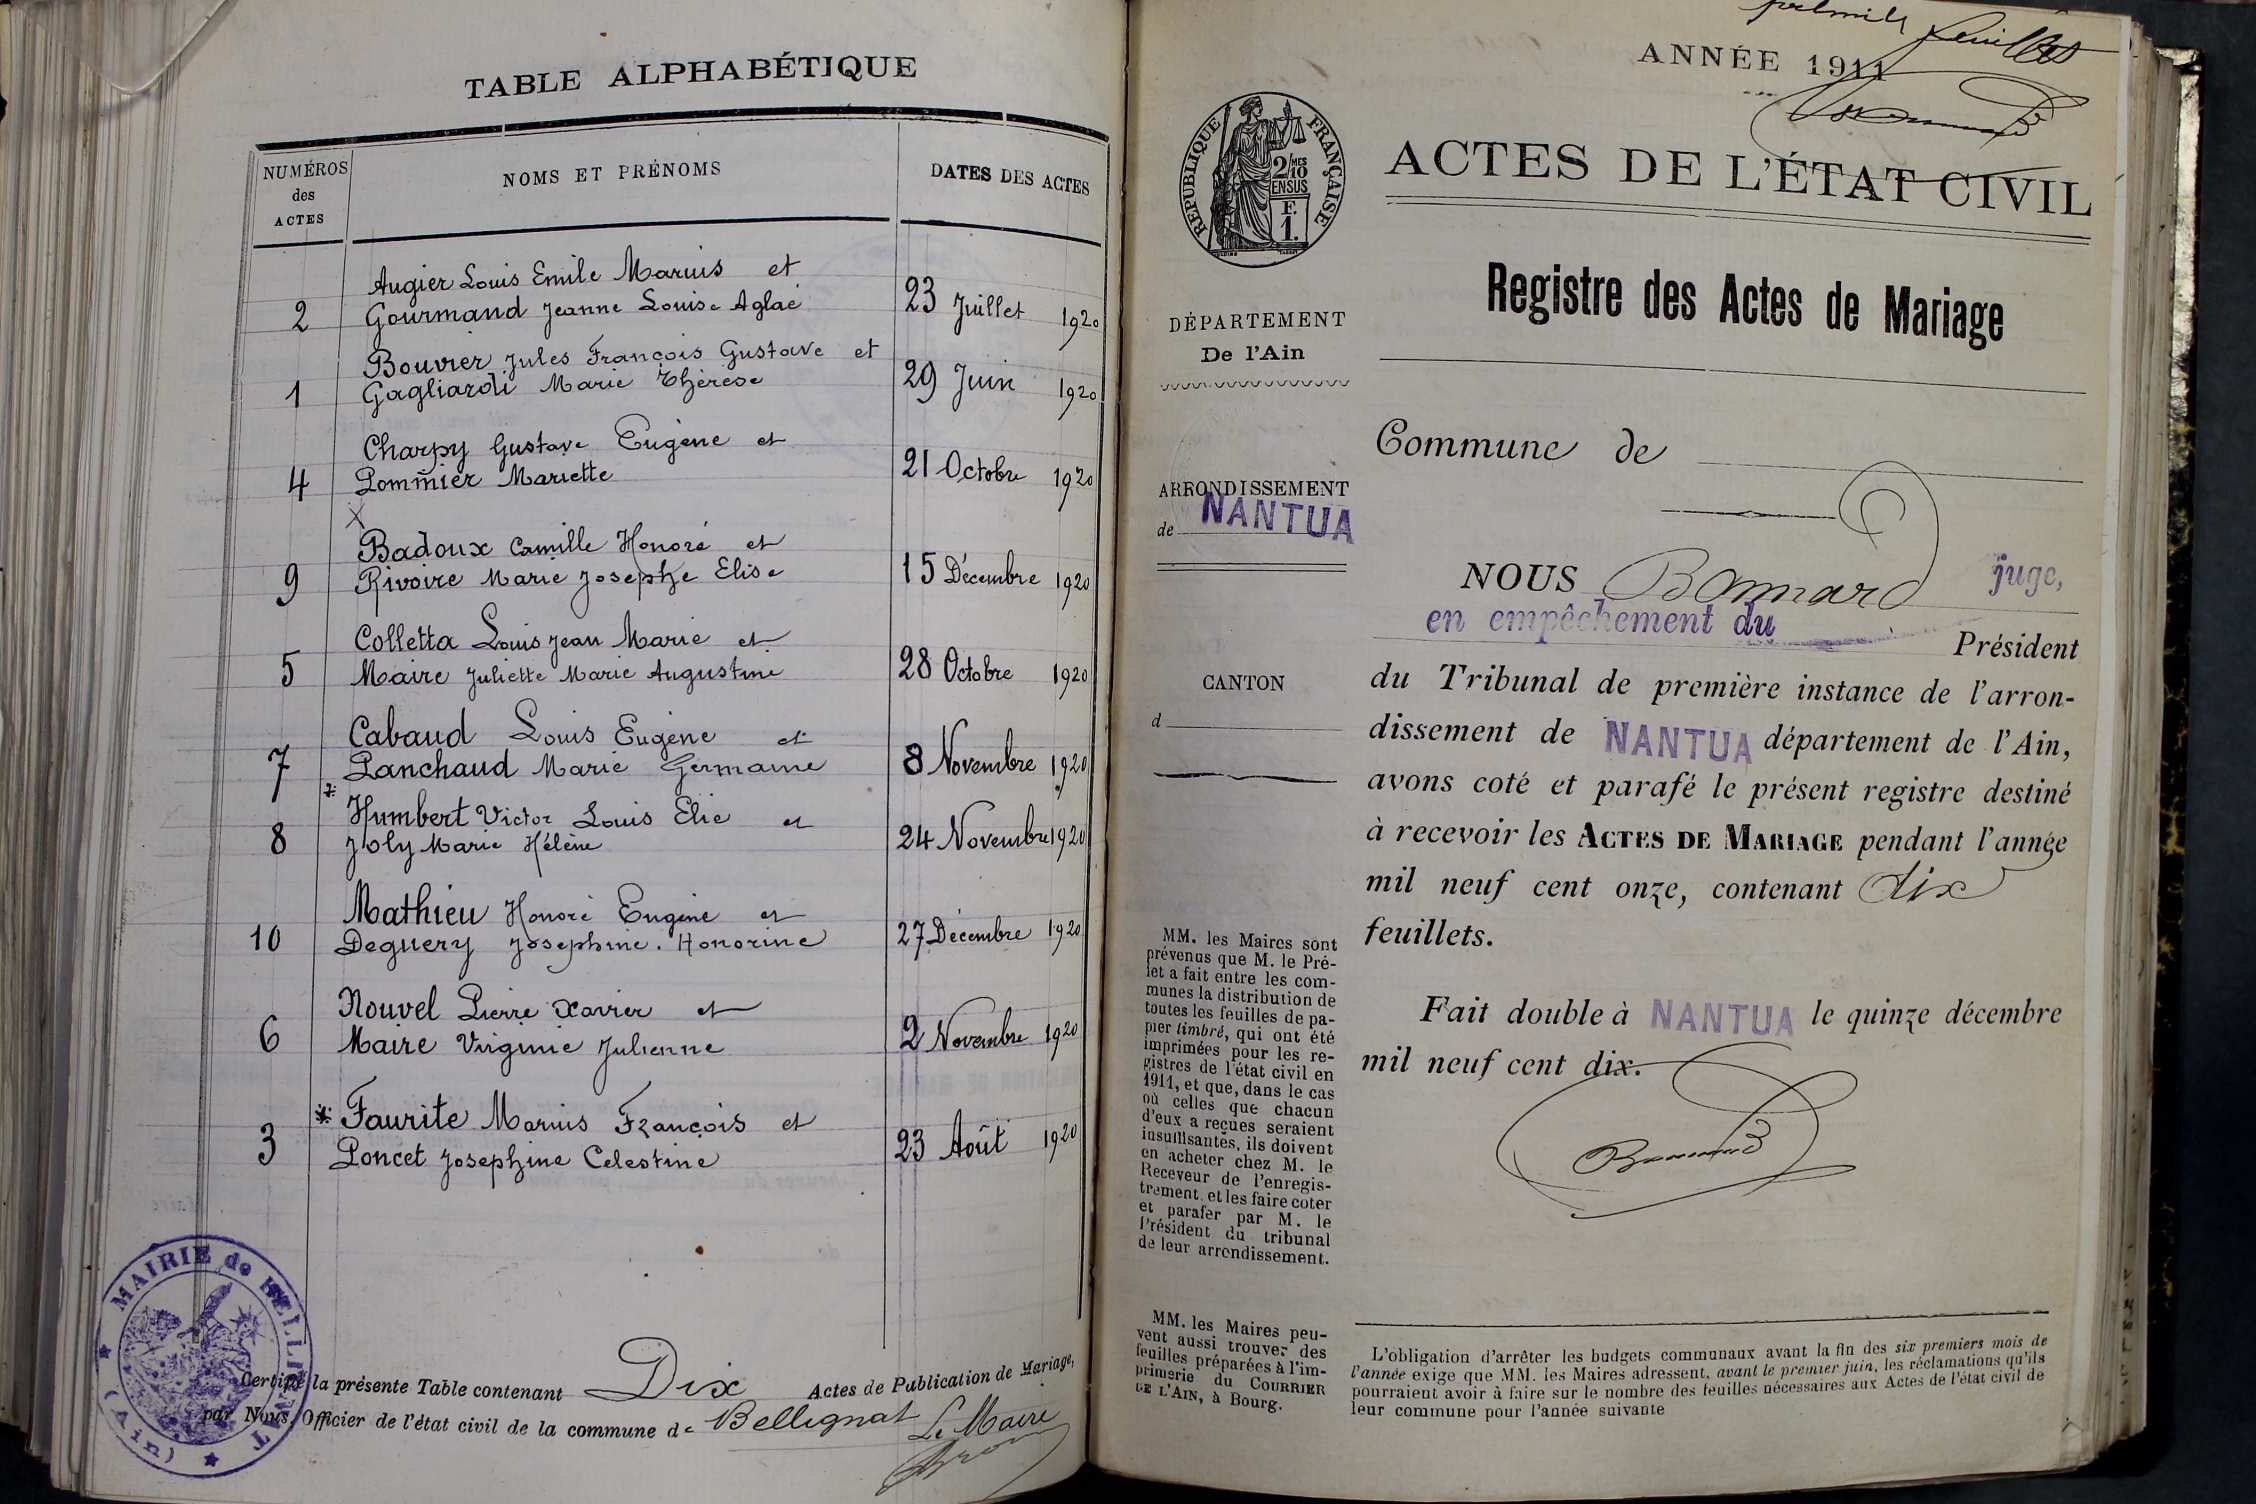 TABLE ALPHABÉTIQUE
NUMÉROS
des
ACTES
NOMS ET PRÉNOMS
DATES DES ACTES
Augier Louis Emile Marius et
2 Gourmand Jeanne Louise Aglaé 23 Juillet 1920
Bouvier Jules François Gustave et
1 Gagliardi Marie Thérèse 29 Juin 1920
Charpy Gustave Eugène et
4 Pommier Mariette 21 Octobre 1920
X
Badoux Camille Honoré et
9 Rivoire Marie Josephe Elise 15 Décembre 1920
Colletta Louis Jean Marie et
5 Maire Juliette Marie Augustine 28 Octobre 1920
Cabaud Louis Eugène et
7 Panchaud Marie Germaine 8 Novembre 1920
Humbert Victor Louis Elie et
8 Joly Marie Hélène 24 Novembre 1920
Mathieu Honoré Eugène et
10 Deguery Josephine. Honorine 27 Décembre 1920
Nouvel Pierre Xavier et
6 Maire Virginie Julienne 2 Novembre 1920
Faurite Marius François et
3 Poncet Josephine Celestine 23 Août 1920
MAIRIE de BELLIGNAT
(Ain)
Certifié la présente Table contenant Dix Actes de Publication de Mariage,
par Nous, Officier de l'état civil de la commune de Bellignat Le Maire
feuillets
ANNÉE 1911
RÉPUBLIQUE FRANÇAISE
2/10 MES
EN SUS
F.
1.
ACTES DE L'ÉTAT CIVIL
Registre des Actes de Mariage
DÉPARTEMENT
De l'Ain
ARRONDISSEMENT
de NANTUA
CANTON
d
MM. les Maires sont
prévenus que M. le Pré-
fet a fait entre les com-
munes la distribution de
toutes les feuilles de pa-
pier timbré, qui ont été
imprimées pour les re-
gistres de l'état civil en
1911, et que, dans le cas
où celles que chacun
d'eux a reçues seraient
insuffisantes, ils doivent
en acheter chez M. le
Receveur de l'enregis-
trement et les faire coter
et parafer par M. le
Président du tribunal
de leur arrondissement.
MM. les Maires peu-
vent aussi trouver des
feuilles préparées à l'im-
primerie du COURRIER
DE L'AIN, à Bourg.
Commune de
NOUS Bonnard juge,
en empêchement du
Président
du Tribunal de première instance de l'arron-
dissement de NANTUA département de l'Ain,
avons coté et parafé le présent registre destiné
à recevoir les ACTES DE MARIAGE pendant l'année
mil neuf cent onze, contenant dix
feuillets.
Fait double à NANTUA le quinze décembre
mil neuf cent dix.
L'obligation d'arrêter les budgets communaux avant la fin des six premiers mois de
l'année exige que MM. les Maires adressent, avant le premier juin, les réclamations qu'ils
pourraient avoir à faire sur le nombre des feuilles nécessaires aux Actes de l'état civil de
leur commune pour l'année suivante